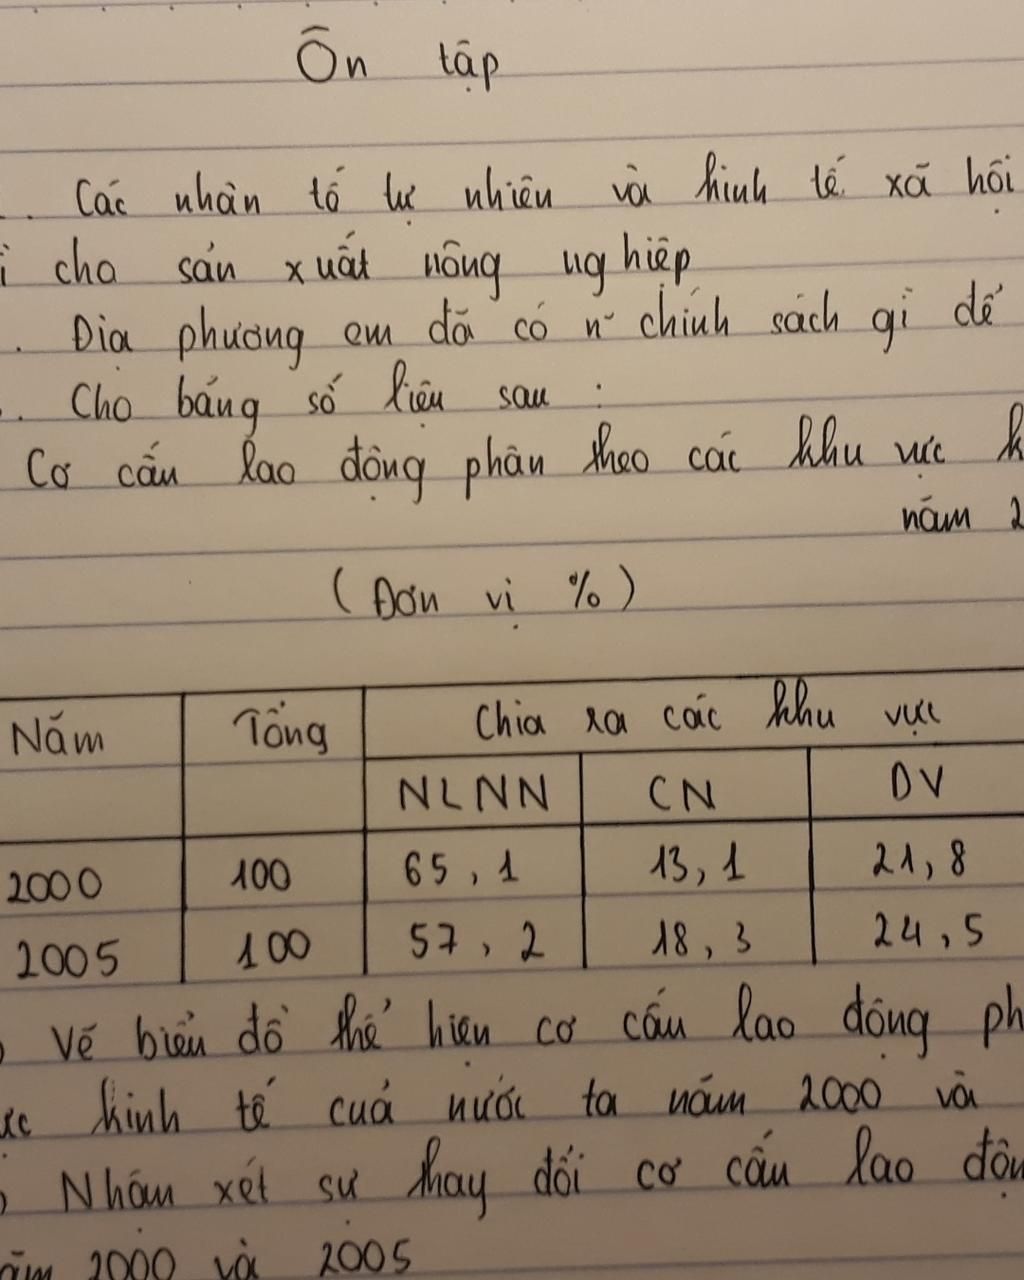 Ôn tập
. Các nhân tố tự nhiên và kinh tế xã hội
cho sản xuất nông nghiệp
. Địa phương em đã có n~ chính sách gì để
. Cho bảng số liệu sau :
Cơ cấu lao động phân theo các khu vực k
năm 2
(Đơn vị %)
Năm Tổng Chia ra các khu vực
NLNN CN DV
2000 100 65,1 13,1 21,8
2005 100 57,2 18,3 24,5
Vẽ biểu đồ thể hiện cơ cấu lao động ph
ực kinh tế của nước ta năm 2000 và
) Nhận xét sự thay đổi cơ cấu lao độn
ăm 2000 và 2005